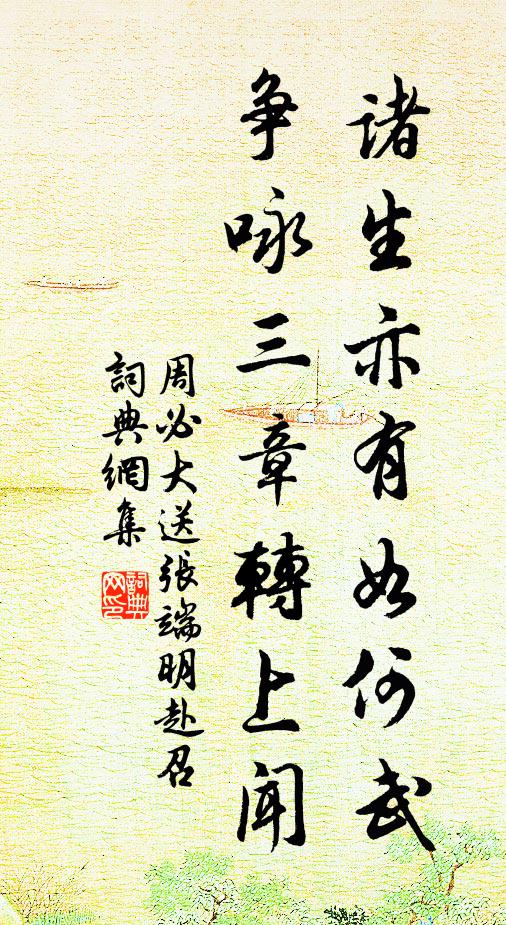 諸生亦有如何武
争咏三章轉上聞
周必大送張端明赴召
詞典網集
詞典网印